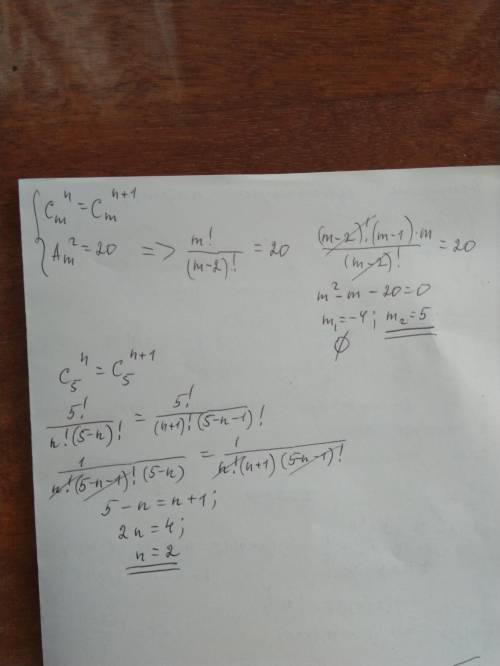 { C_m^n = C_m^{n+1}
A_m^2 = 20 => m!/(m-2)! = 20 (m-2)!(m-1)·m/(m-2)! = 20
m² - m - 20 = 0
m₁ = -4; m₂ = 5
∅
C_5^n = C_5^{n+1}
5!/n!(5-n)! = 5!/(n+1)!(5-n-1)!
1/n!(5-n-1)!(5-n) = 1/n!(n+1)(5-n-1)!
5 - n = n + 1;
2n = 4;
n = 2